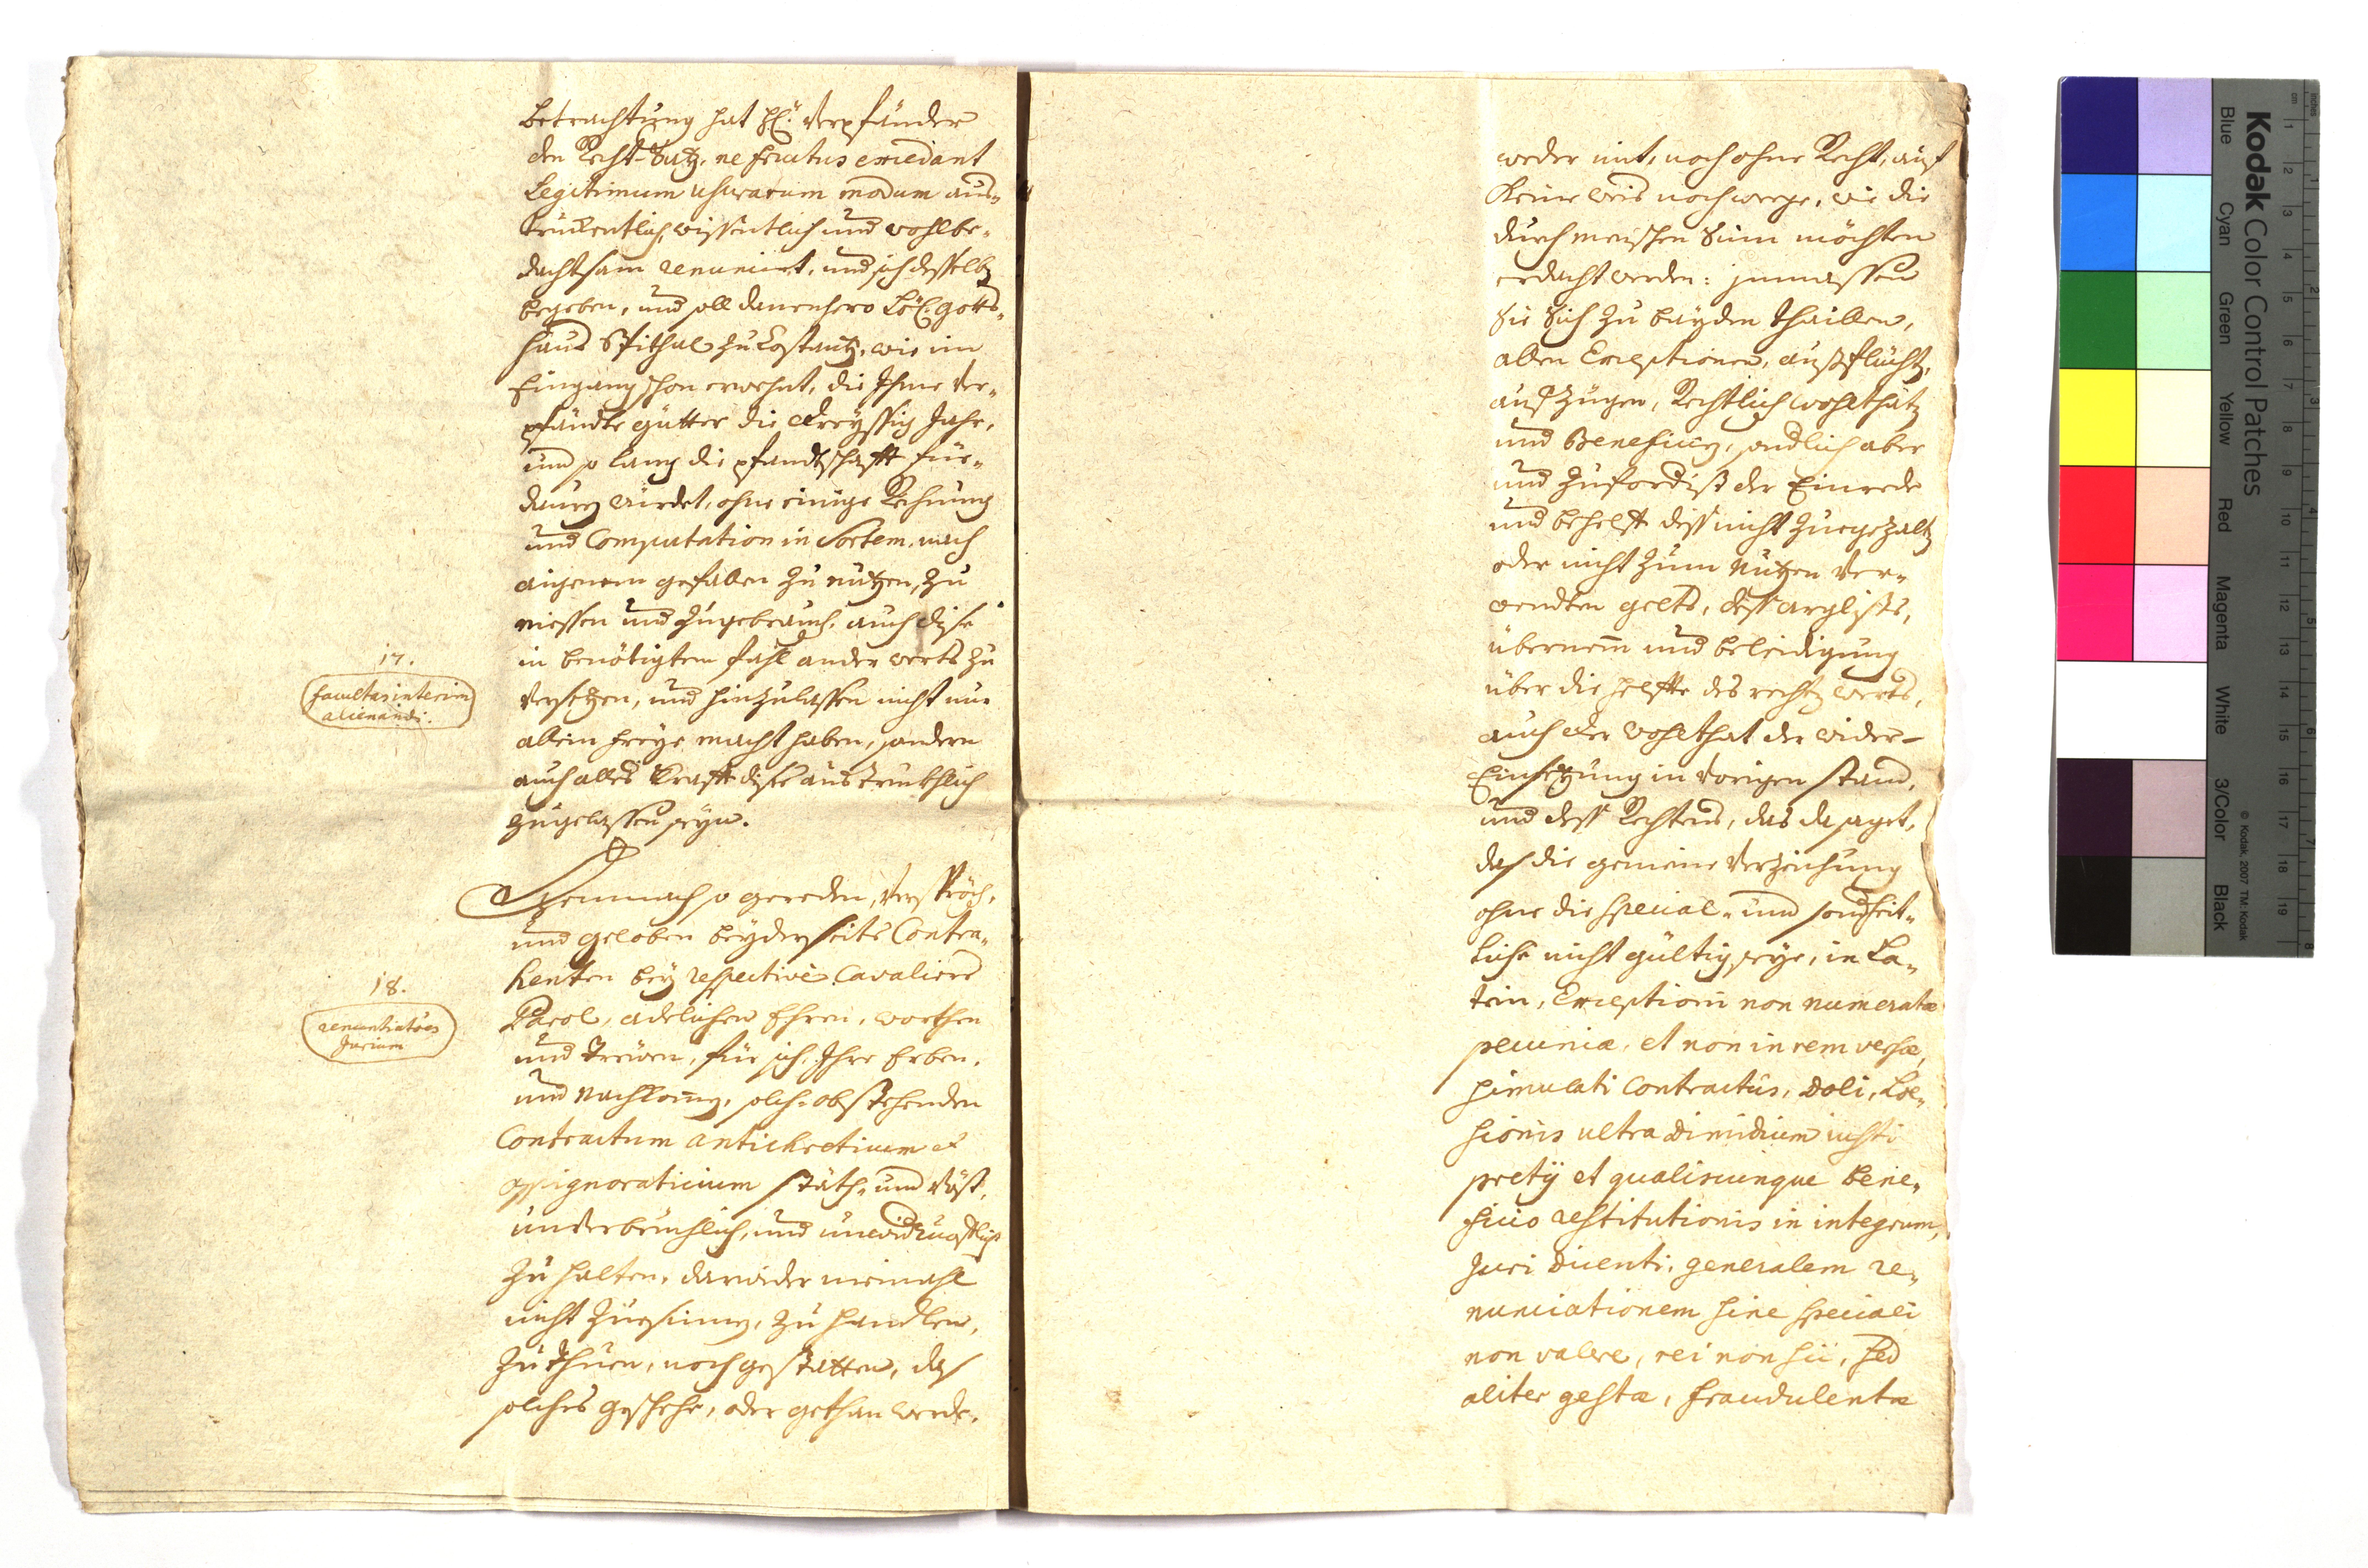 betrachtung hat H: Verpfänder
den Recht-Satz, ne fructus excedant
Legitimum usurarum modum aus-
trückentlich, wissentlich und wohlbe-
dachtsam renunciert, und sich desselb
begeben, und soll danenhero Löb: gotts-
haus Spithal zu Costantz, wie im
Eingang schon erwehnt, die Ihme Ver-
pfändte gütter die dreyssig Jahr,
und so lang die pfandtschafft für-
dauren würdet, ohne einige Rechnung
und Computation in Sortem. nach
aigenem gefallen zu nutzen, zu
niessen und zugebrauch. auch dise
in benötigtem fahl anderwerts zu
versetzen, und hinzulassen nicht nur
allein freye macht haben, sondern
auch alles krafft dises austrukhlich
zugelassen seyn.
17.
facultas interim
alienandi.
Demnach so gereden, Verspröch.
und geloben beyderseits Contra-
henten bey respectivè Cavaliers
Parol, adelichen Ehren, worthen
und treüen, für sich, Ihre Erben,
und Nachkomm, solch-obstehenden
Contractum antichreticum et
oppignoraticium stäth- und Vöst,
underbrüchlich, und unwid
zu halten, darwider niemahl
nicht zuesinnen, zu handlen,
zu thuen, noch gestatten, das
solches geschehe, oder gethan werde,
18.
renuntiatões
Jurium
weder mit, noch ohne Recht, auf
keine weis noch weege, wie die
durch menschen Sinn möchten
erdacht werden: jnmassen
Sie Sich zu bayden thaillen,
allen Exceptionen, aussflücht,
ausszügen, Rechtlich wohlthat
und Beneficien, sondlich aber
und zufordist der Einrede
und behelff dess nicht zuegezalt
oder nicht zum Nutzen Ver-
wendten gelts, dess arglists,
übernem und beleidigung
über die helffte des recht werts,
auch der wohlthat der wider-
Einsetzung in vorigen stand,
und dess Rechtens, das da saget,
das die gemeine Verzeichung
ohne die special- und sonderheit-
liche nicht gültig seye, in La-
tein, Exceptioni non numeratæ
pecuniæ, et non in rem versæ,
simulati Contractûs, Doli, Læ-
sionis ultra dimidium iusti
pretij et qualiscunque bene-
ficio restitutionis in integrum,
Juri dicenti, generalem re-
nunciationem sine speciali
non valere, rei non sic, sed
aliter gestæ, fraudulentæ